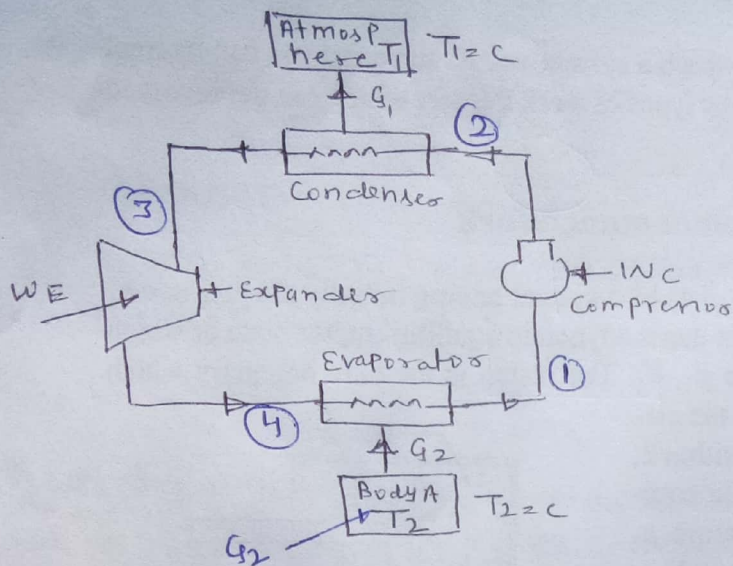 Atmosp
here T1
T1 = C
G1
2
Condenser
3
WE
Expander
INC
Compressor
Evaporator
1
4
G2
Body A
T2
T2 = C
G2